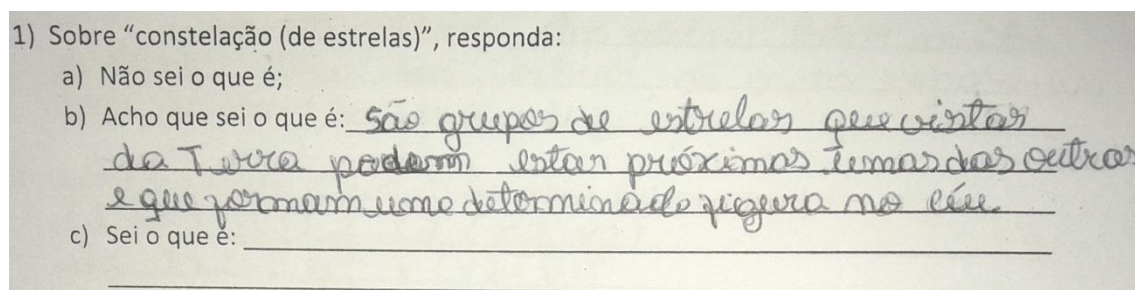 1) Sobre “constelação (de estrelas)”, responda:
a) Não sei o que é;
b) Acho que sei o que é: São grupos de estrelas que vistas
da Terra podem estar próximas umas das outras
e que formam uma determinada figura no céu.
c) Sei o que é: